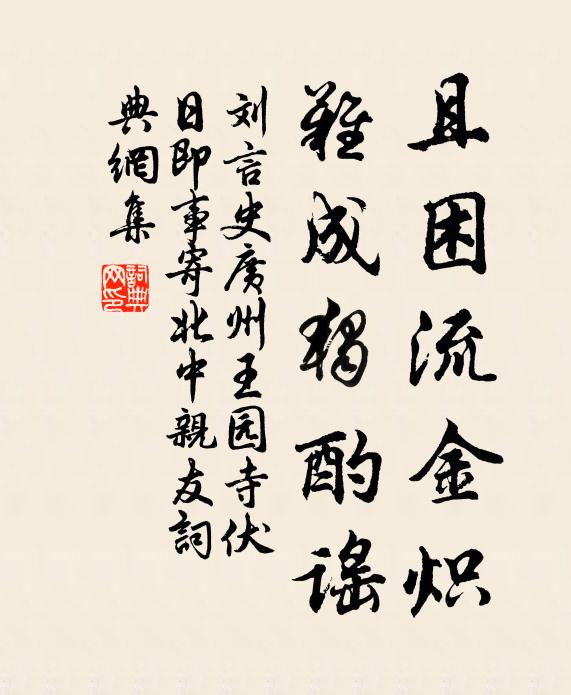 且困流金炽
难成独酌謡
刘言史廣州王园寺伏
日即事寄北中親友詞
典網集
詞典网印